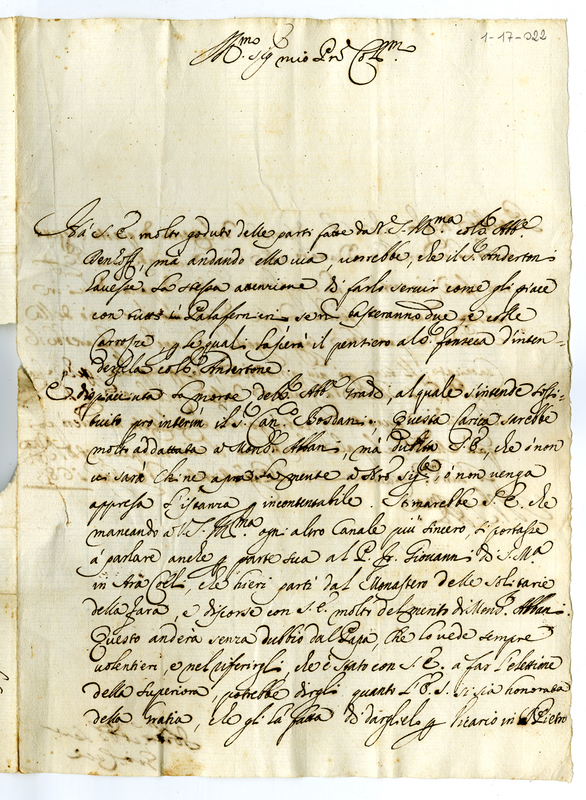 1-17-022
Ill.mo Sig.r mio Pre Col.mo
Hà S. E. molto goduto delle parti fatte da V. S. Ill.ma col S.r Abb.e
ma andando ella via, vorrebbe, che il S.r Anderton
havesse la stessa attenzione di farlo servir come gli piace
con tutti i Palafernieri, se non basteranno due, e colle
Carrozze, p le quali lascierà il pensiero al S.r Fonseca d'inten-
dersela col S.r Andertone.
È dispiaciuta la morte del S.r Abb.e Gradi, al quale s'intende sosti-
tuito pro interim il S.r Can.co Bordani. Questa Carica sarebbe
molto addattata a Mons.r Albani, mà dubita S. E., che ò non
vi sarà chi ne apra la mente a Nro Sig.re, ò non venga
appresa l'istanza p incontentabile. Stimarebbe S. E. che
mancando a V. S. Ill.ma ogni altro Canale più sincero, si portasse
à parlare anche p parte sua al P. F. Giovanni di S. M.a
in Ara Coeli, che hieri partì dal Monastero delle Solitarie
della Fara, e discorse con S. E. molto del merito di Mons.r Albani.
Questo anderà senza dubbio dal Papa, che lo vede sempre
volentieri, e nel riferirgli che è stato con S. E. a far l'elettione
della Superiora, potrebbe dirgli quanto S. E. si sia honorata
della gratia, che gli hà fatta di darglielo p Vicario in S. Pietro